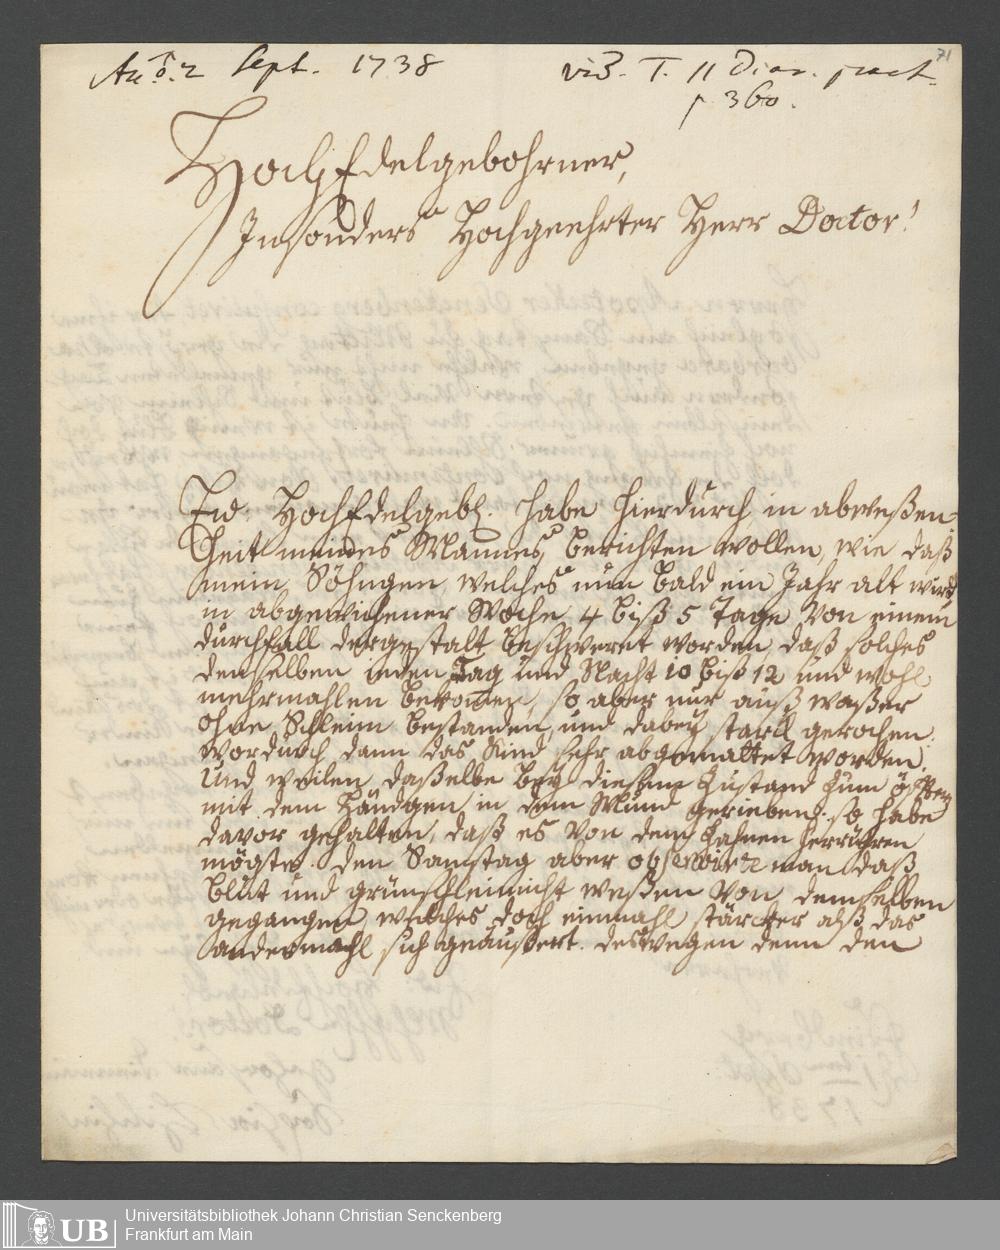 71
Aō. 2 Sept. 1738
vid. T. II Diar. pract.
p 360.
HochEdelgebohrner,
Insonders Hochgeehrter Herr Doctor!
Ew. HochEdelgebl. habe hierdurch in abweßen-
heit meines Mannes berichten wollen, wie daß
mein Söhngen, welches nun bald ein Jahr alt wird
in abgewichener Woche 4 biß 5 Tage von einem
durchfall dergestalt beschweret worden, daß solches
denselben jeden Tag und Nacht 10 biß 12 und wohl
mehrmahlen bekom̄en, so aber nur auß waßer
ohne Schleim bestanden, und dabey starck gerochen.
Wordurch dann das Kind sehr abgemattet worden.
Und weilen daßelbe bey dießem Zustand zum öfftern
mit dem Händgen in dem Mund gerieben: so habe
davor gehalten, daß es von dem Zahnen herrühren
mögte. den Samstag aber observirte man daß
blut und grünschleimicht weßen von demselben
gegangen welches doch einmahl stärcker alß das
andermahl sich geäußert. deswegen denn den
Universitätsbibliothek Johann Christian Senckenberg
Frankfurt am Main
UB